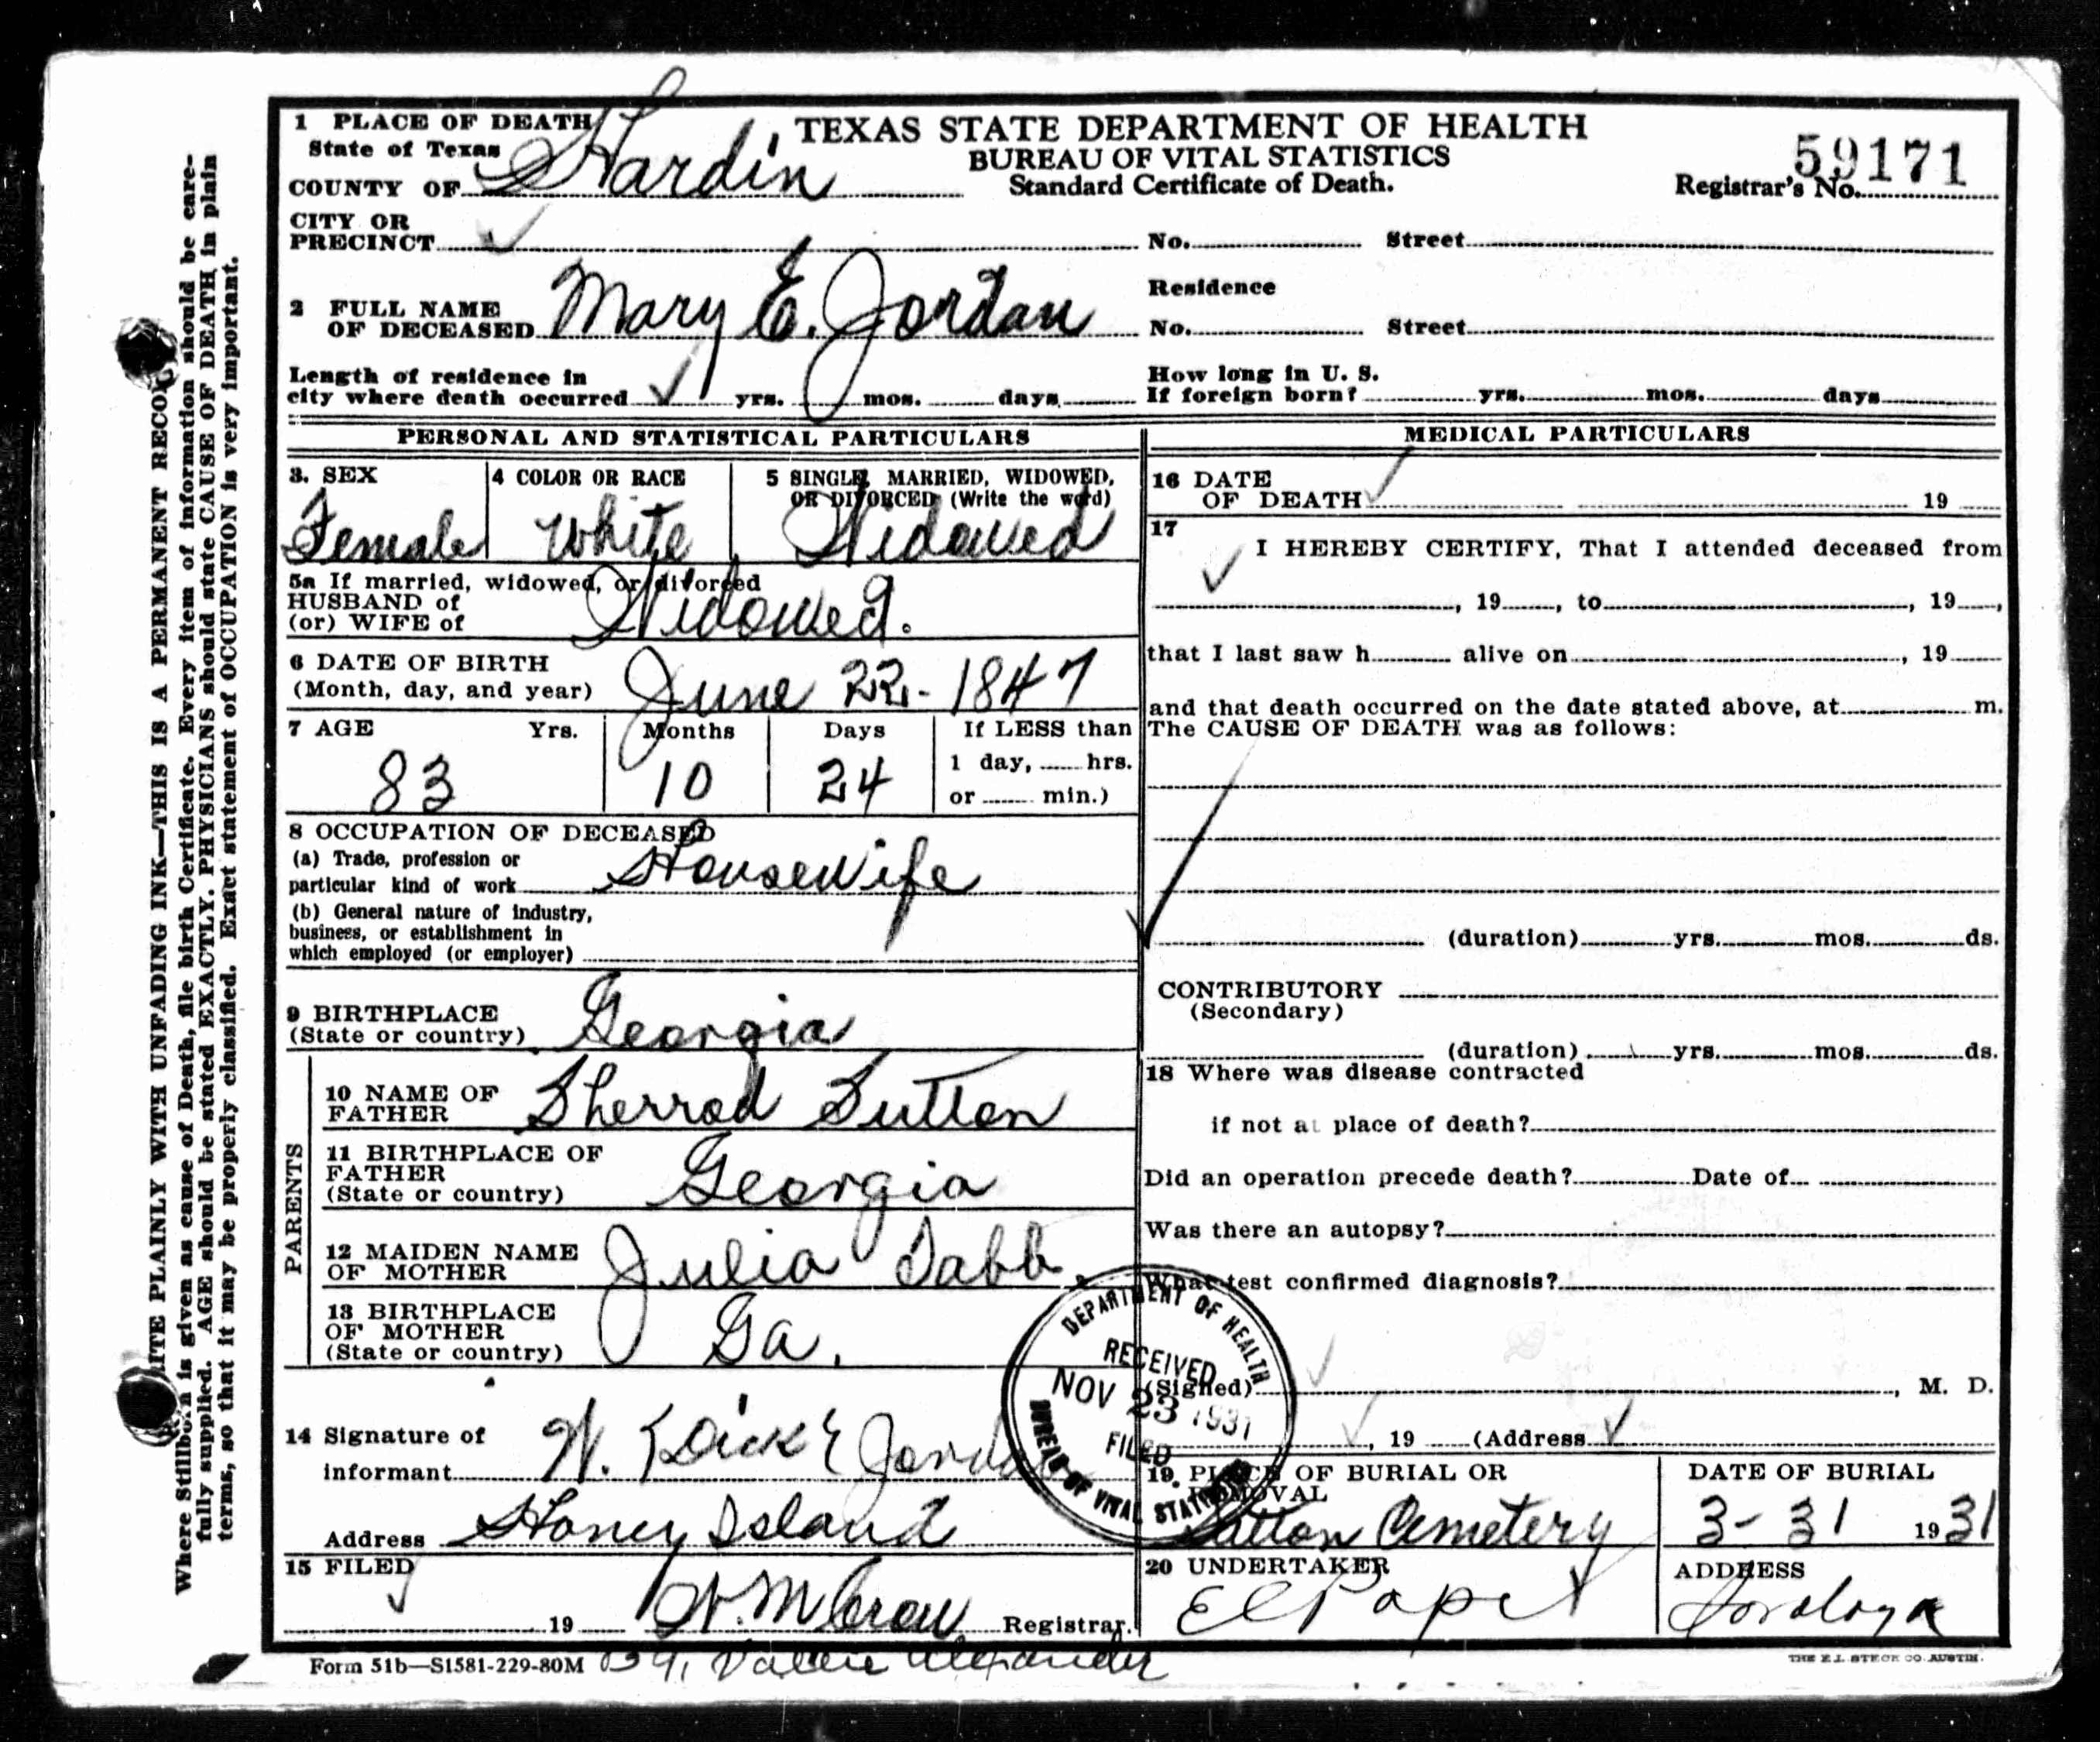 1 PLACE OF DEATH
State of Texas
COUNTY OF Hardin
TEXAS STATE DEPARTMENT OF HEALTH
BUREAU OF VITAL STATISTICS
Standard Certificate of Death.
59171
Registrar's No.
CITY OR
PRECINCT
No. Street
2 FULL NAME
OF DECEASED Mary E. Jordan
Residence
No. Street
Length of residence in
city where death occurred yrs. mos. days
How long in U. S.
If foreign born? yrs. mos. days
PERSONAL AND STATISTICAL PARTICULARS
3. SEX
Female
4 COLOR OR RACE
White
5 SINGLE, MARRIED, WIDOWED,
OR DIVORCED (Write the word)
Widowed
5a If married, widowed, or divorced
HUSBAND of
(or) WIFE of
Widowed.
6 DATE OF BIRTH
(Month, day, and year) June 22 - 1847
7 AGE Yrs. Months Days If LESS than
83 10 24 1 day, hrs.
or min.)
8 OCCUPATION OF DECEASED
(a) Trade, profession or
particular kind of work Housewife
(b) General nature of industry,
business, or establishment in
which employed (or employer)
9 BIRTHPLACE
(State or country) Georgia
PARENTS
10 NAME OF
FATHER Sherrod Sutton
11 BIRTHPLACE OF
FATHER
(State or country) Georgia
12 MAIDEN NAME
OF MOTHER Julia Tabb
13 BIRTHPLACE
OF MOTHER
(State or country) Ga.
14 Signature of
informant W. Jordan
Address Honey Island
15 FILED
19 Registrar.
MEDICAL PARTICULARS
16 DATE
OF DEATH 19
17
I HEREBY CERTIFY, That I attended deceased from
, 19 , to , 19 ,
that I last saw h alive on , 19
and that death occurred on the date stated above, at m.
The CAUSE OF DEATH was as follows:
(duration) yrs. mos. ds.
CONTRIBUTORY
(Secondary)
(duration) yrs. mos. ds.
18 Where was disease contracted
if not at place of death?
Did an operation precede death? Date of
Was there an autopsy?
What test confirmed diagnosis?
(Signed) , M. D.
, 19 (Address
19. PLACE OF BURIAL OR
REMOVAL
Sutton Cemetery
DATE OF BURIAL
3 - 31 1931
20 UNDERTAKER
ADDRESS
DEPARTMENT OF HEALTH
RECEIVED
NOV 23 1931
FILED
BUREAU OF VITAL STATISTICS
Form 51b—S1581-229-80M By, Alexander
THE E.L. STECK CO. AUSTIN.
WRITE PLAINLY WITH UNFADING INK—THIS IS A PERMANENT RECORD
Where Stillborn is given as cause of Death, file birth Certificate. Every item of information should be care-
fully supplied. AGE should be stated EXACTLY. PHYSICIANS should state CAUSE OF DEATH in plain
terms, so that it may be properly classified. Exact statement of OCCUPATION is very important.